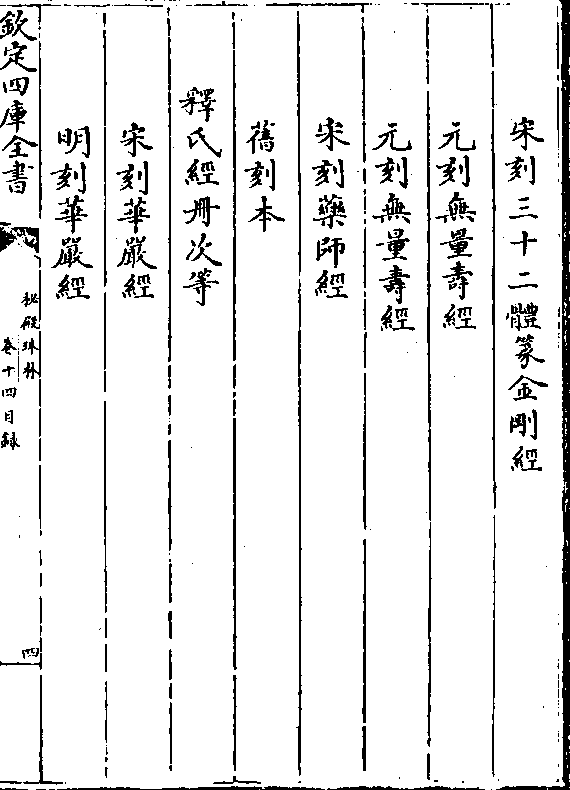 宋刻三十二體篆金剛經
元刻無量壽經
元刻無量壽經
宋刻藥師經
舊刻本
釋氏經册次等
宋刻華嚴經
明刻華嚴經
欽定四庫全書
秘殿珠林
卷十四目録
四